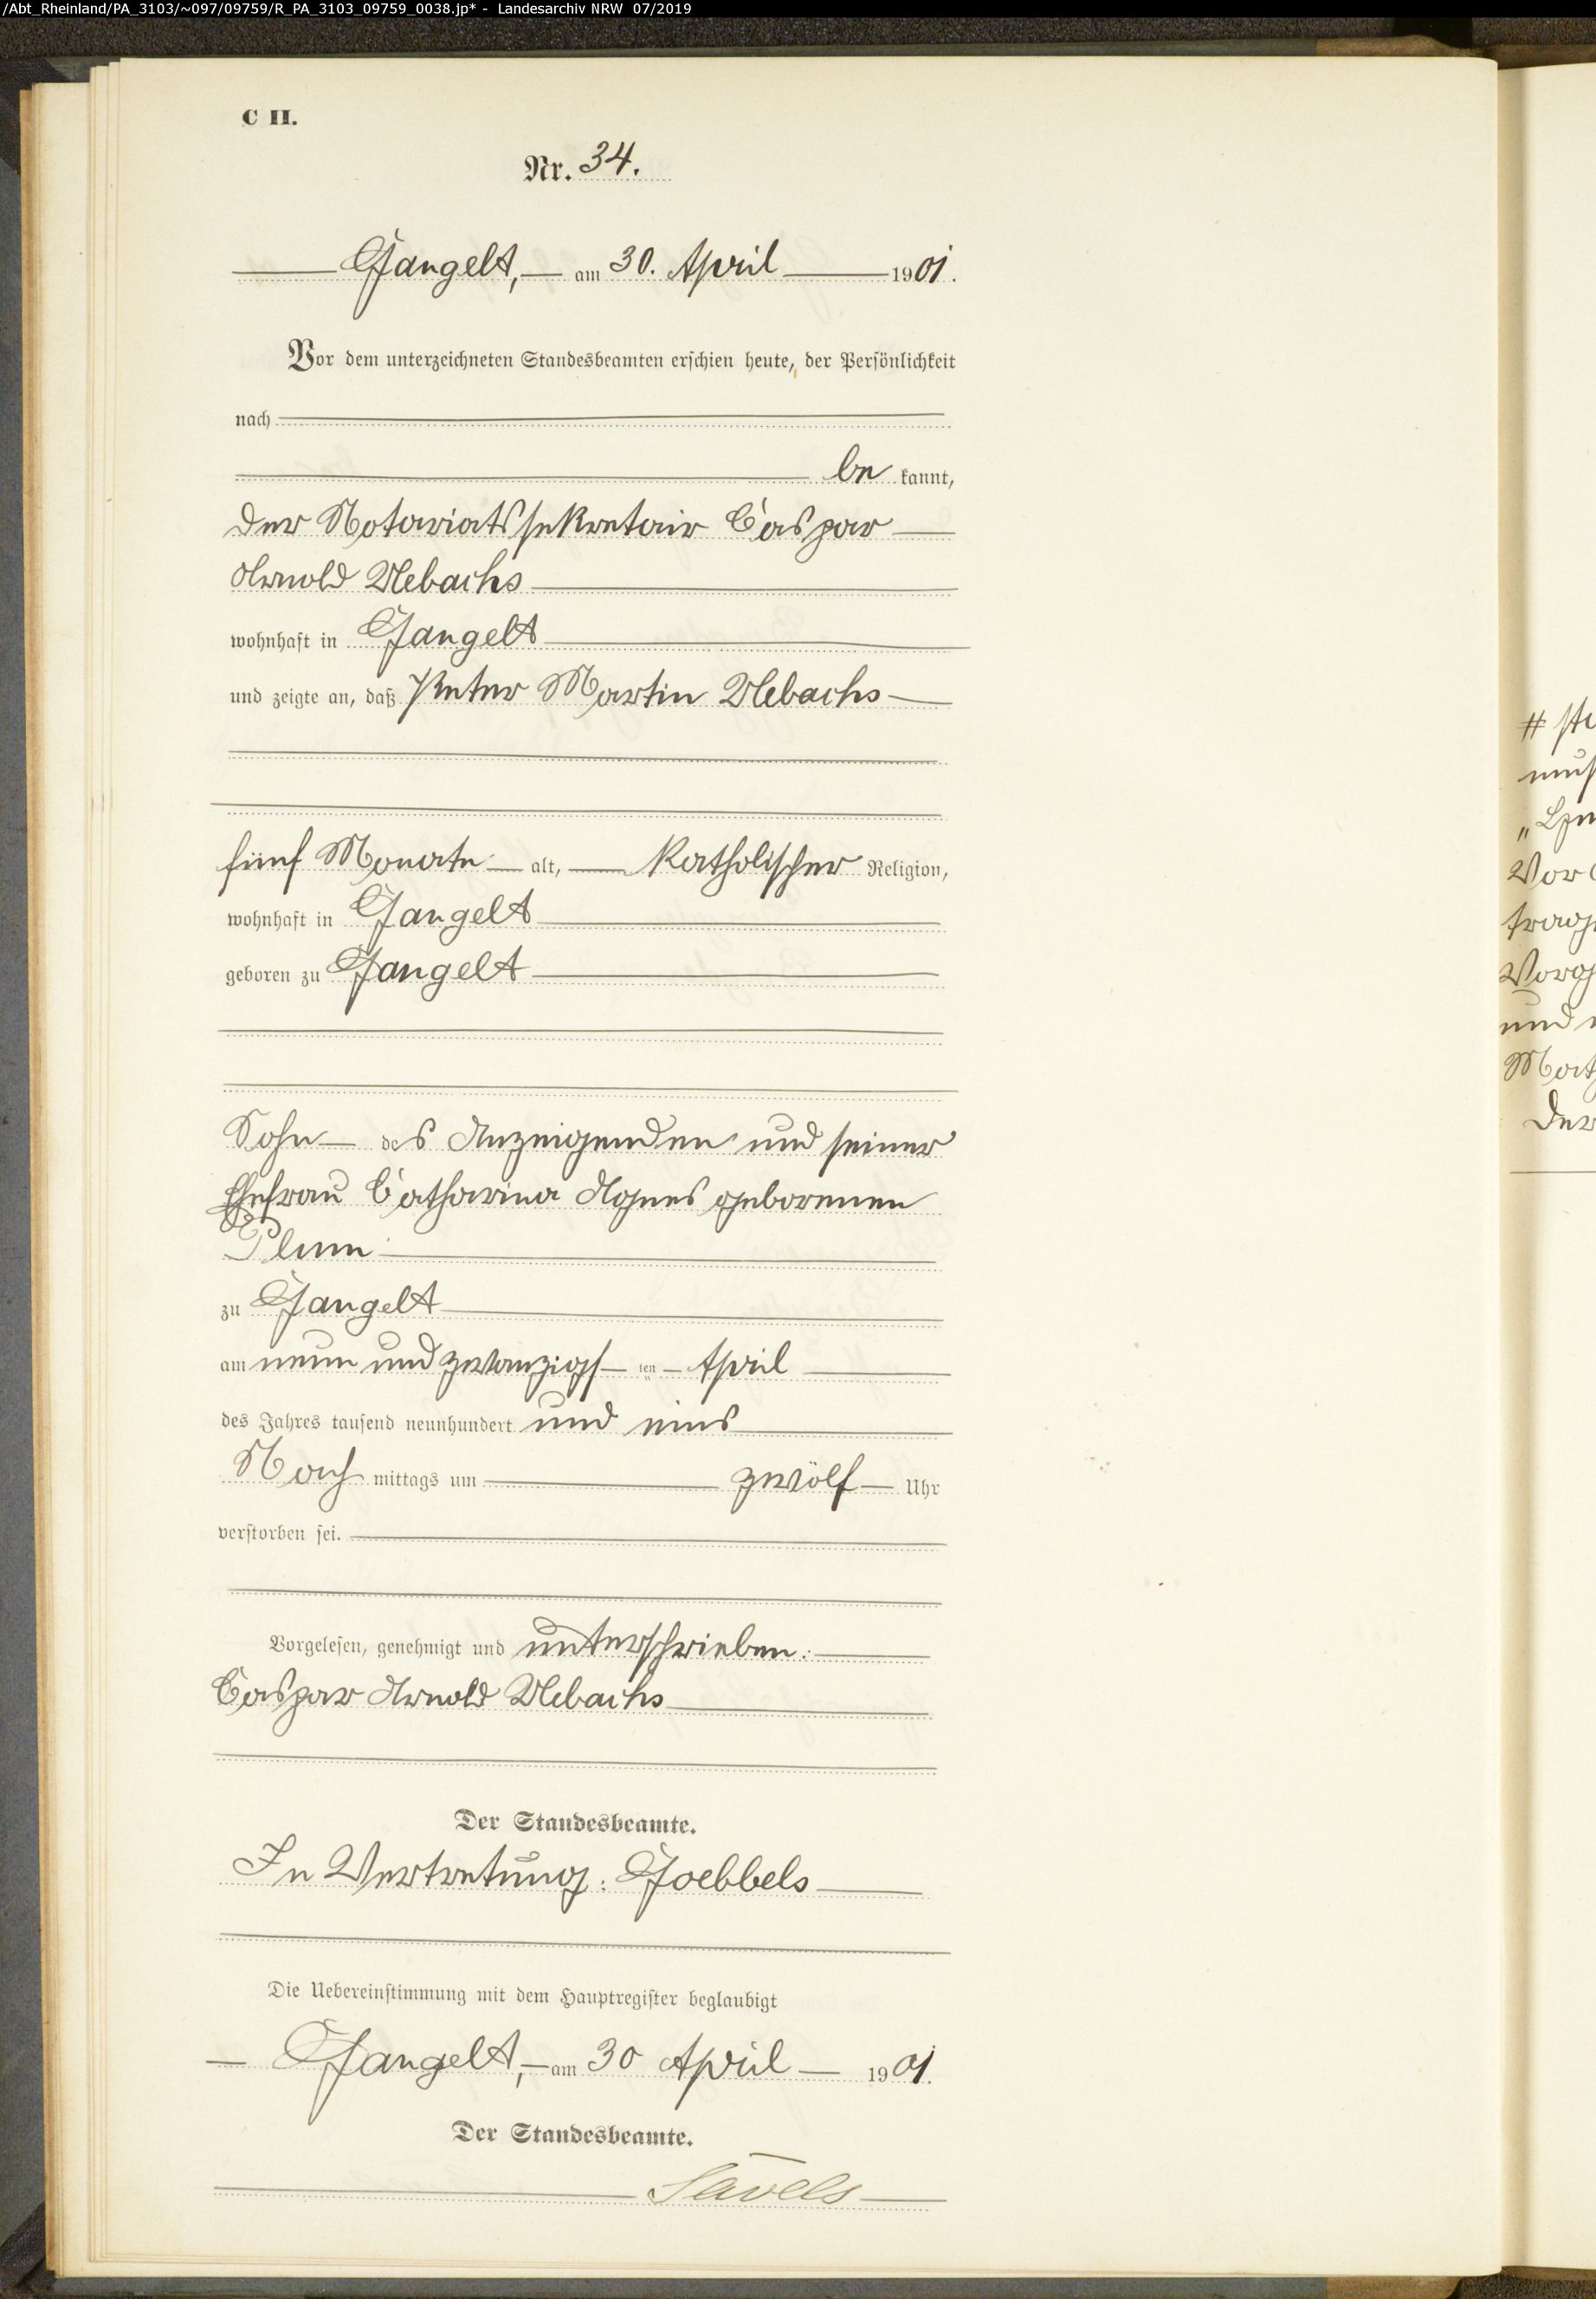 /Abt_Rheinland/PA_3103/~097/09759/R_PA_3103_09759_0038.jp* - Landesarchiv NRW 07/2019
C II.
Nr. 34.
Gangelt, am 30. April 1901.
Vor dem unterzeichneten Standesbeamten erschien heute, der Persönlichkeit
nach
be kannt,
der Notariatssekretair Caspar
Arnold Mebachs
wohnhaft in Gangelt
und zeigte an, daß Peter Martin Mebachs
fünf Monate alt, katholischer Religion,
wohnhaft in Gangelt
geboren zu Gangelt
Sohn des Anzeigenden und seiner
Ehefrau Catharina Agnes geborenen
Plum
zu Gangelt
am neun und zwanzigsten April
des Jahres tausend neunhundert und eins
Nach mittags um zwölf Uhr
verstorben sei.
Vorgelesen, genehmigt und unterschrieben:
Caspar Arnold Mebachs
Der Standesbeamte.
In Vertretung: Goebbels
Die Uebereinstimmung mit dem Hauptregister beglaubigt
Gangelt, am 30 April 1901.
Der Standesbeamte.
Savels
und
Der